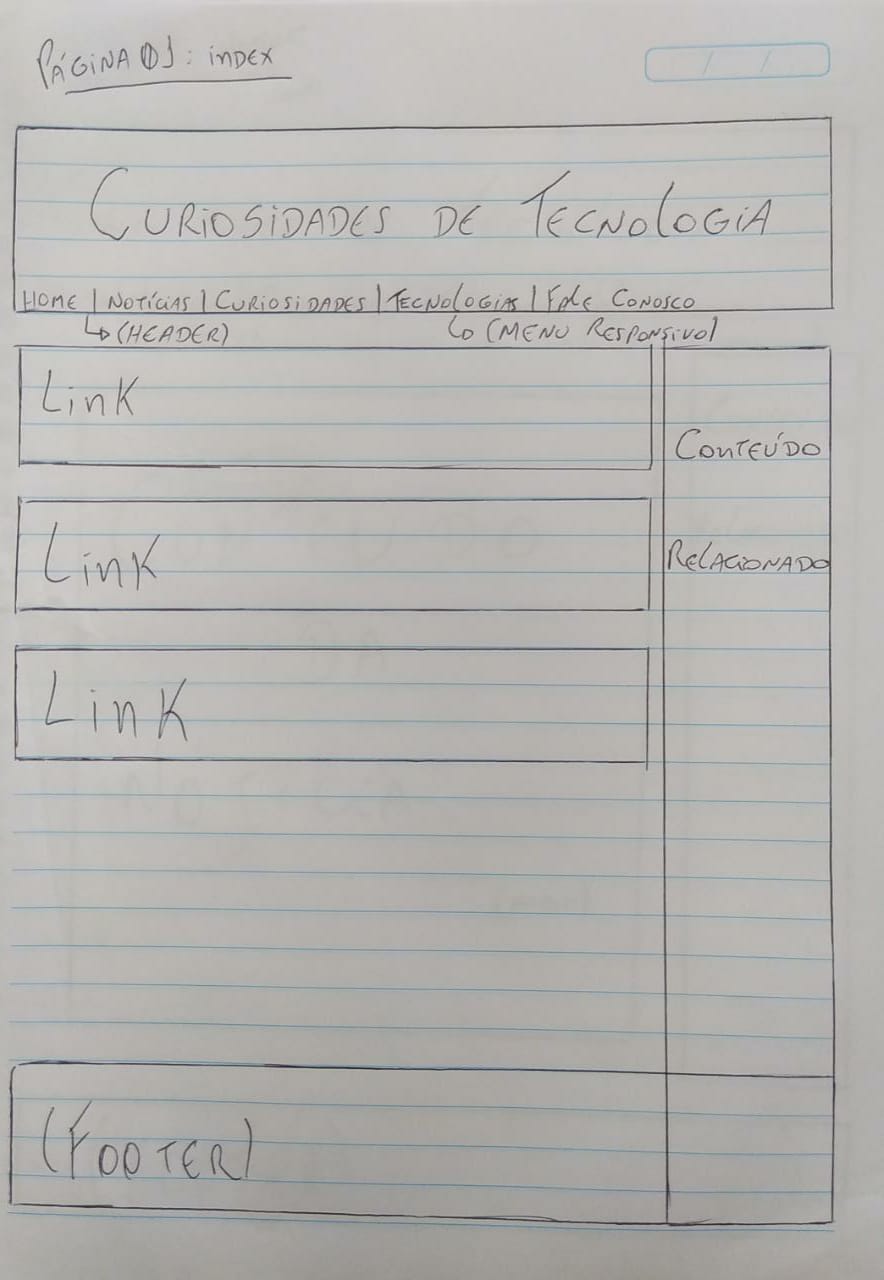 PÁGINA 01: index
CURIOSIDADES DE TECNOLOGIA
HOME | NOTÍCIAS | CURIOSIDADES | TECNOLOGIAS | FALE CONOSCO
↳ (HEADER) ↳ (MENU RESPONSIVO)
Link
CONTEÚDO
Link
RELACIONADO
Link
(FOOTER)